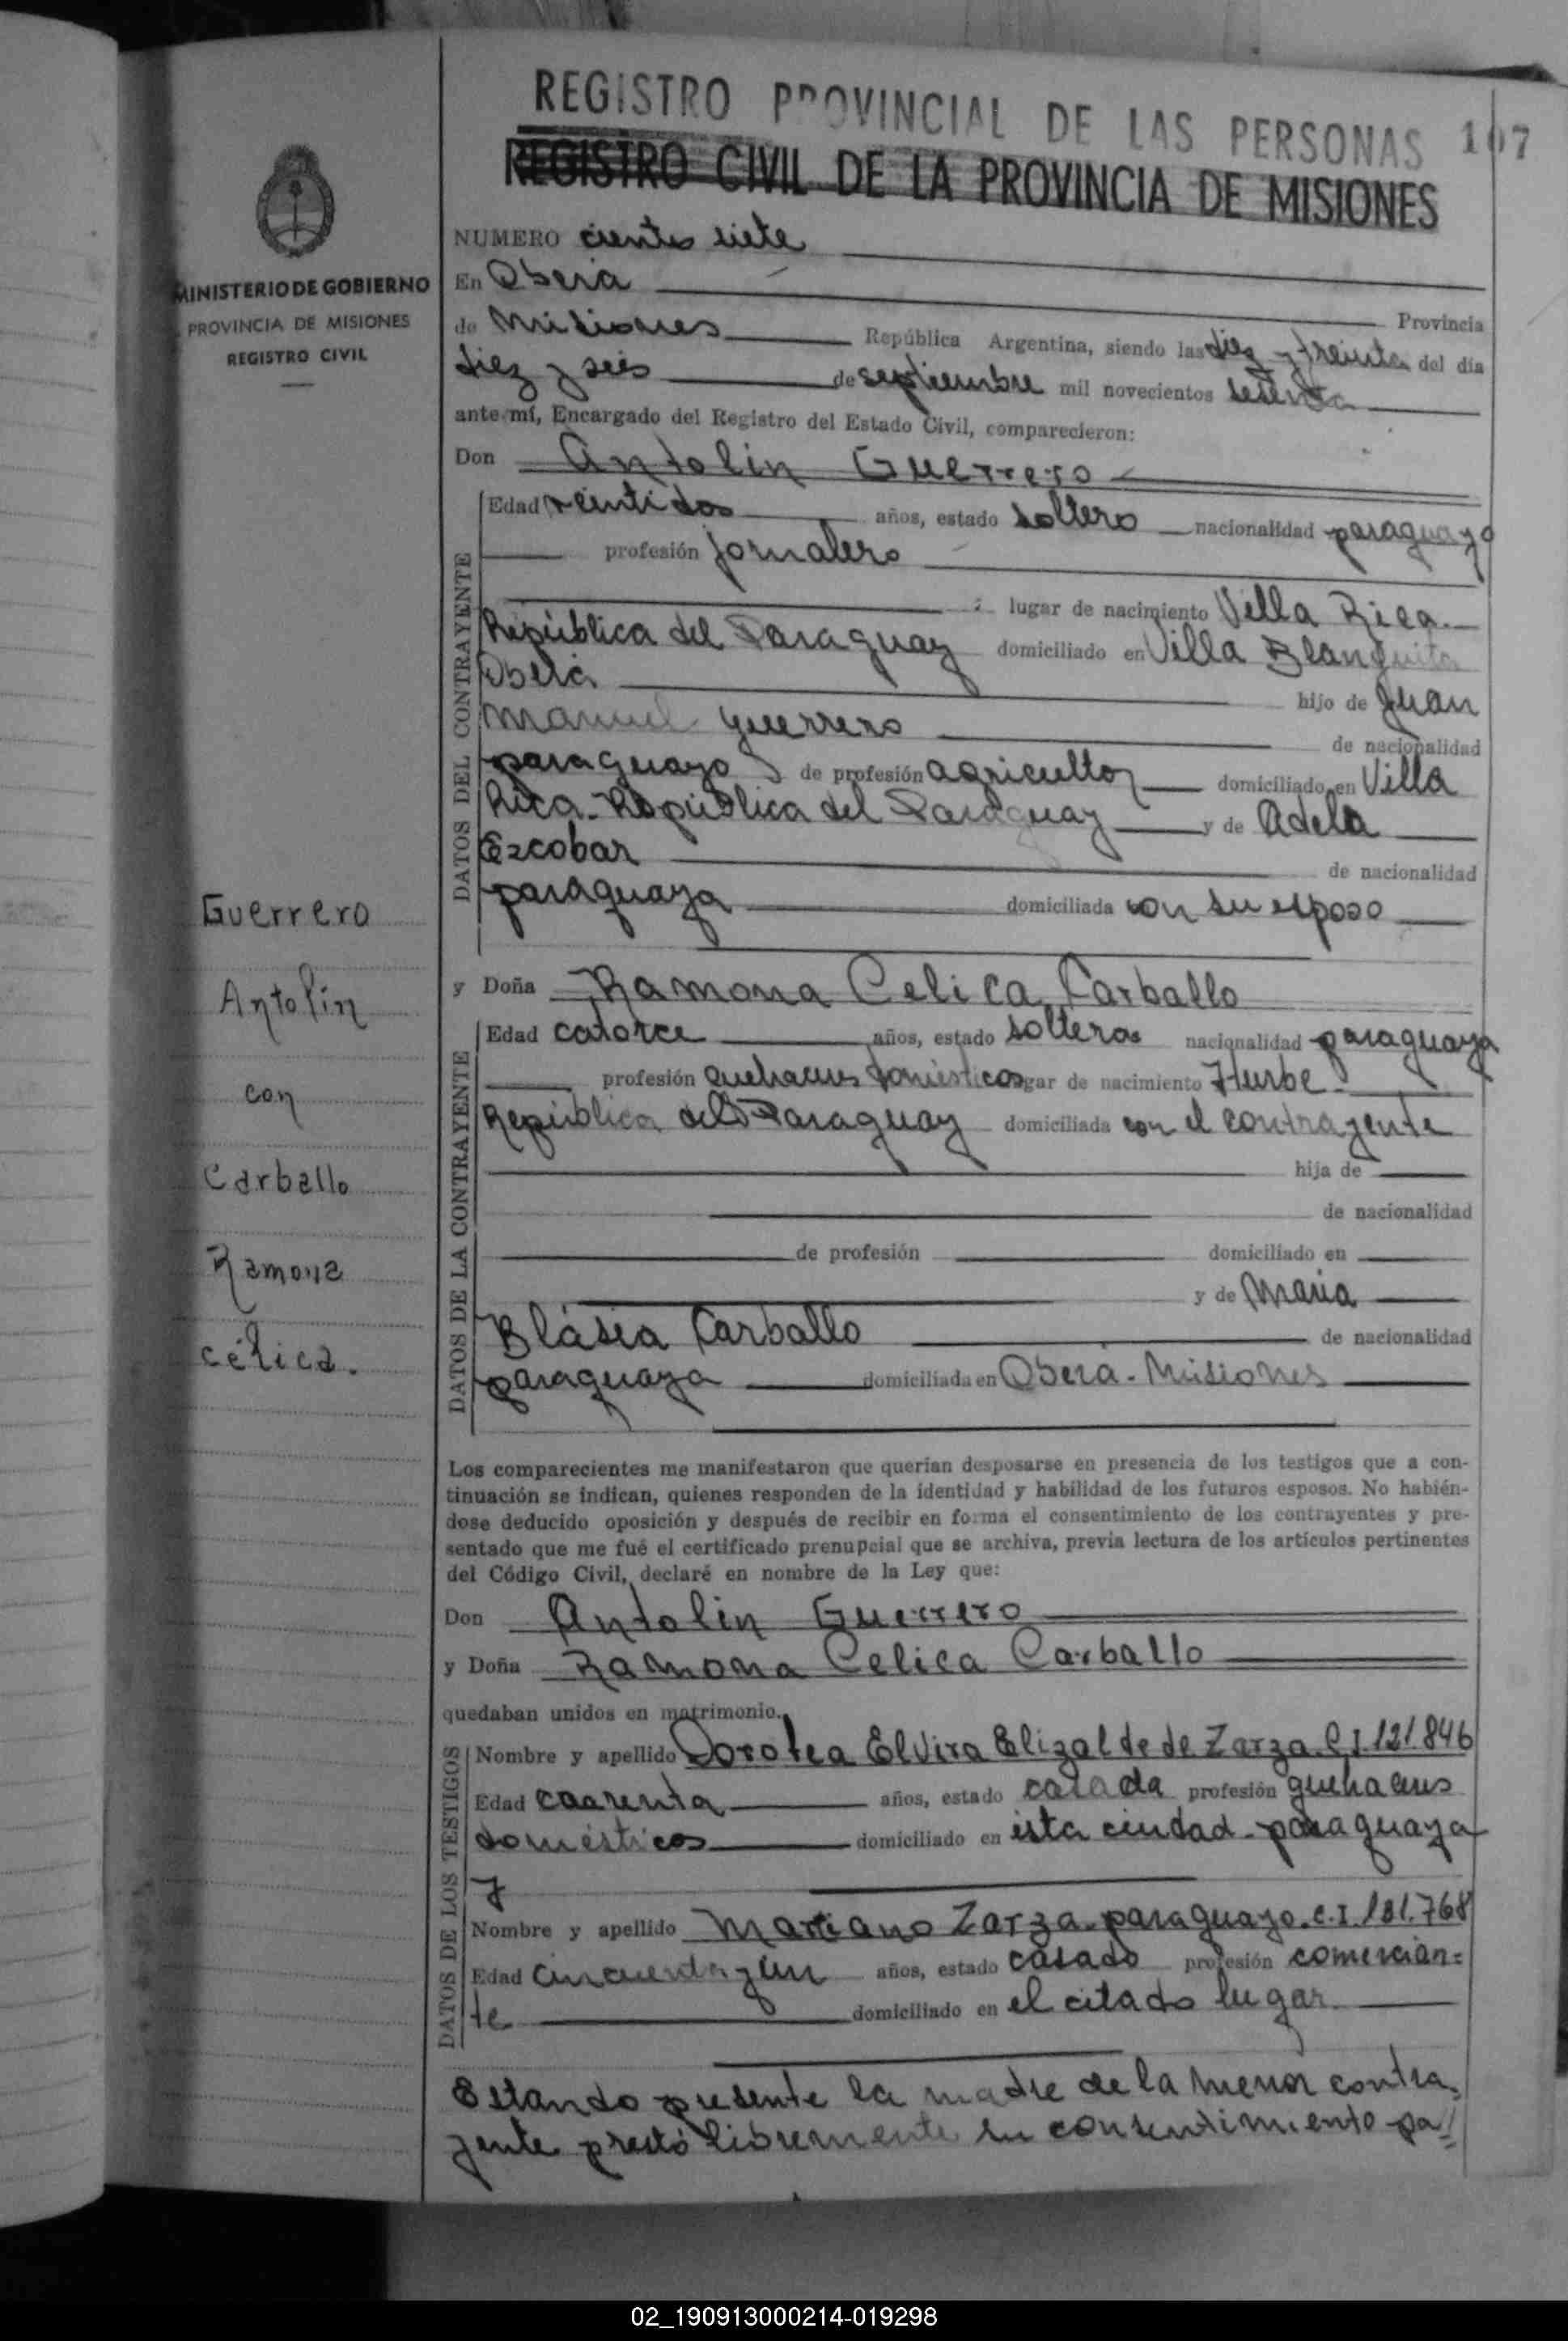 REGISTRO PROVINCIAL DE LAS PERSONAS 107
REGISTRO CIVIL DE LA PROVINCIA DE MISIONES
MINISTERIO DE GOBIERNO
PROVINCIA DE MISIONES
REGISTRO CIVIL
NUMERO ciento siete
En Oberá
Provincia
de Misiones República Argentina, siendo las diez y treinta del día
diez y seis de septiembre mil novecientos sesenta
ante mí, Encargado del Registro del Estado Civil, comparecieron:
Don Antolin Guerrero
DATOS DEL CONTRAYENTE
Edad veintidos años, estado soltero nacionalidad paraguayo
profesión jornalero
lugar de nacimiento Villa Rica.
República del Paraguay domiciliado en Villa Blanquita
Oberá hijo de Juan
Manuel Guerrero de nacionalidad
paraguayo de profesión agricultor domiciliado en Villa
Rica-República del Paraguay y de Adela
Escobar de nacionalidad
paraguaya domiciliada con su esposo
y Doña Ramona Celica Carballo
DATOS DE LA CONTRAYENTE
Edad catorce años, estado soltera nacionalidad paraguaya
profesión quehaceres domésticos lugar de nacimiento Iturbe-
República del Paraguay domiciliada con el contrayente
hija de
de nacionalidad
de profesión domiciliado en
y de María
Blásia Carballo de nacionalidad
paraguaya domiciliada en Oberá-Misiones
Guerrero
Antolín
con
Carballo
Ramona
célica.
Los comparecientes me manifestaron que querían desposarse en presencia de los testigos que a con-
tinuación se indican, quienes responden de la identidad y habilidad de los futuros esposos. No habién-
dose deducido oposición y después de recibir en forma el consentimiento de los contrayentes y pre-
sentado que me fué el certificado prenupcial que se archiva, previa lectura de los artículos pertinentes
del Código Civil, declaré en nombre de la Ley que:
Don Antolin Guerrero
y Doña Ramona Celica Carballo
quedaban unidos en matrimonio.
DATOS DE LOS TESTIGOS
Nombre y apellido Dorotea Elvira Elizalde de Zarza C.I. 121.846
Edad cuarenta años, estado casada profesión quehaceres
domésticos domiciliado en esta ciudad-paraguaya
y
Nombre y apellido Marciano Zarza-paraguayo. C.I. 181.768
Edad cincuenta y un años, estado casado profesión comercian=
te domiciliado en el citado lugar.
Estando presente la madre de la menor contra=
yente prestó libremente su consentimiento pa/
02_190913000214-019298